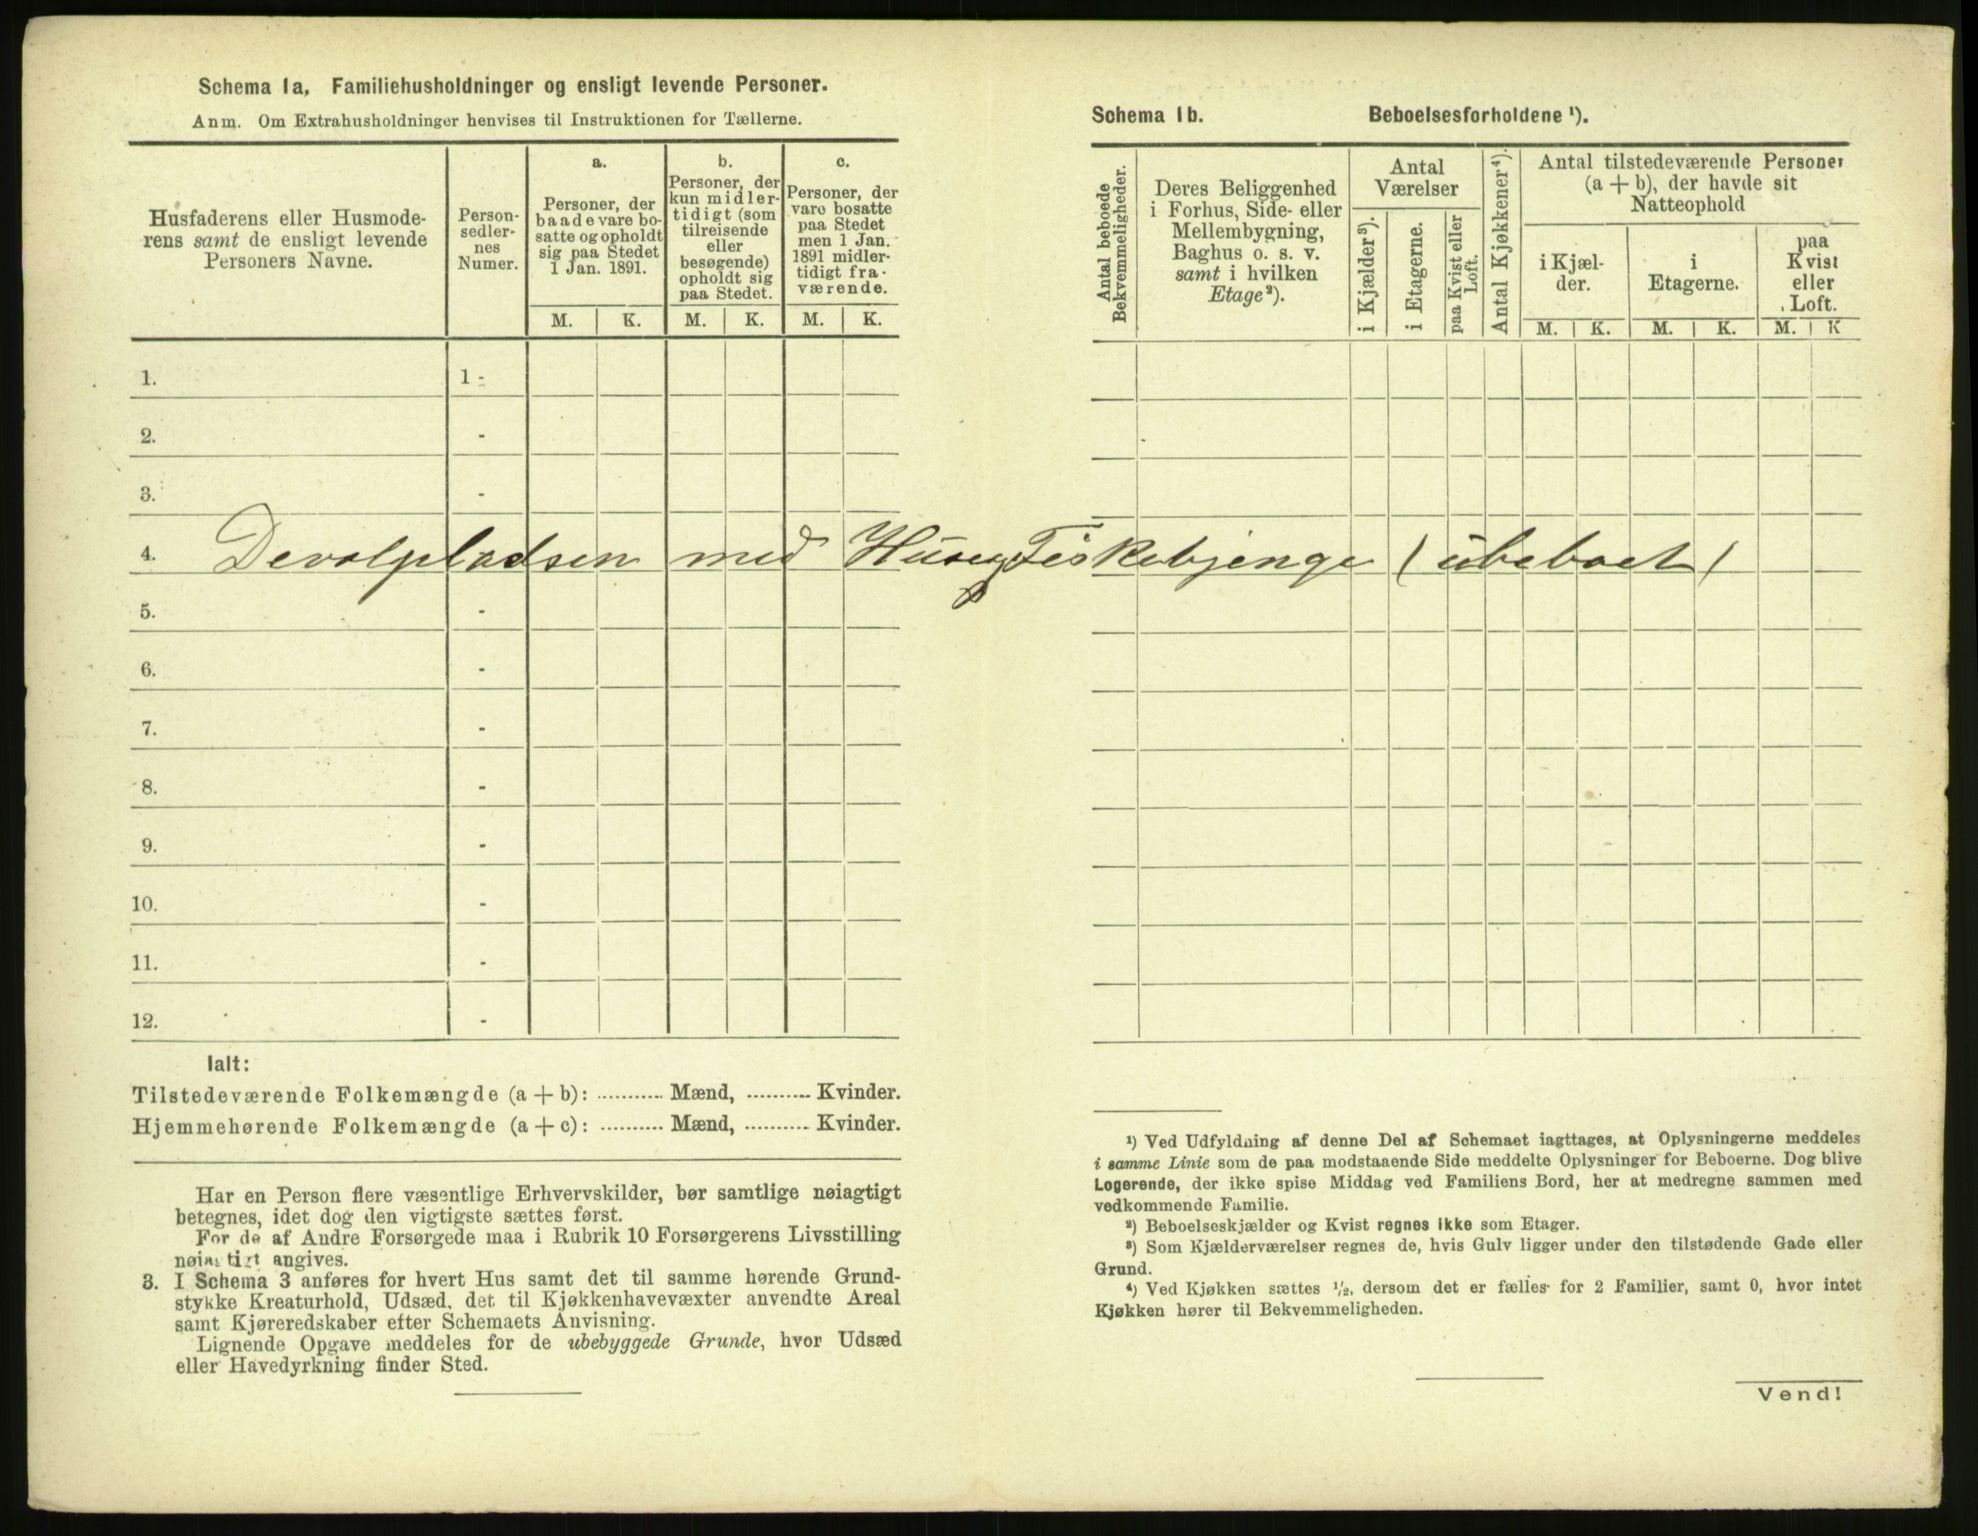 Schema 1a, Familiehusholdninger og ensligt levende Personer.
Anm. Om Extrahusholdninger henvises til Instruktionen for Tællerne.
Husfaderens eller Husmode-
rens samt de ensligt levende
Personers Navne.
Person-
sedler-
nes
Numer.
a.
Personer, der
baade vare bo-
satte og opholdt
sig paa Stedet
1 Jan. 1891.
b.
Personer, der
kun midler-
tidigt (som
tilreisende
eller
besøgende)
opholdt sig
paa Stedet.
c.
Personer, der
vare bosatte
paa Stedet
men 1 Jan.
1891 midler-
tidigt fra-
værende.
M. K. M. K. M. K.
1. 1 -
2. -
3. -
4. Devolpladsen med Huse og Fiskebjenge (ubeboet)
5. -
6. -
7. -
8. -
9. -
10. -
11. -
12. -
Ialt:
Tilstedeværende Folkemængde (a + b): ........... Mænd, .......... Kvinder.
Hjemmehørende Folkemængde (a + c): .......... Mænd, .......... Kvinder.
Har en Person flere væsentlige Erhvervskilder, bør samtlige nøiagtigt
betegnes, idet dog den vigtigste sættes først.
For de af Andre Forsørgede maa i Rubrik 10 Forsørgerens Livsstilling
nøiagtigt angives.
3. I Schema 3 anføres for hvert Hus samt det til samme hørende Grund-
stykke Kreaturhold, Udsæd, det til Kjøkkenhavevæxter anvendte Areal
samt Kjøreredskaber efter Schemaets Anvisning.
Lignende Opgave meddeles for de ubebyggede Grunde, hvor Udsæd
eller Havedyrkning finder Sted.
Schema 1b. Beboelsesforholdene ¹).
Antal beboede
Bekvemmeligheder.
Deres Beliggenhed
i Forhus, Side- eller
Mellembygning,
Baghus o. s. v.
samt i hvilken
Etage²).
Antal
Værelser
i Kjælder³).
i Etagerne.
paa Kvist eller
Loft.
Antal Kjøkkener⁴).
Antal tilstedeværende Personer
(a + b), der havde sit
Natteophold
i Kjæl-
der.
i
Etagerne.
paa
Kvist
eller
Loft.
M. K. M. K. M. K
¹) Ved Udfyldning af denne Del af Schemaet iagttages, at Oplysningerne meddeles
i samme Linie som de paa modstaaende Side meddelte Oplysninger for Beboerne. Dog blive
Logerende, der ikke spise Middag ved Familiens Bord, her at medregne sammen med
vedkommende Familie.
²) Beboelseskjælder og Kvist regnes ikke som Etager.
³) Som Kjælderværelser regnes de, hvis Gulv ligger under den tilstødende Gade eller
Grund.
⁴) Ved Kjøkken sættes ½, dersom det er fælles for 2 Familier, samt 0, hvor intet
Kjøkken hører til Bekvemmeligheden.
Vend!